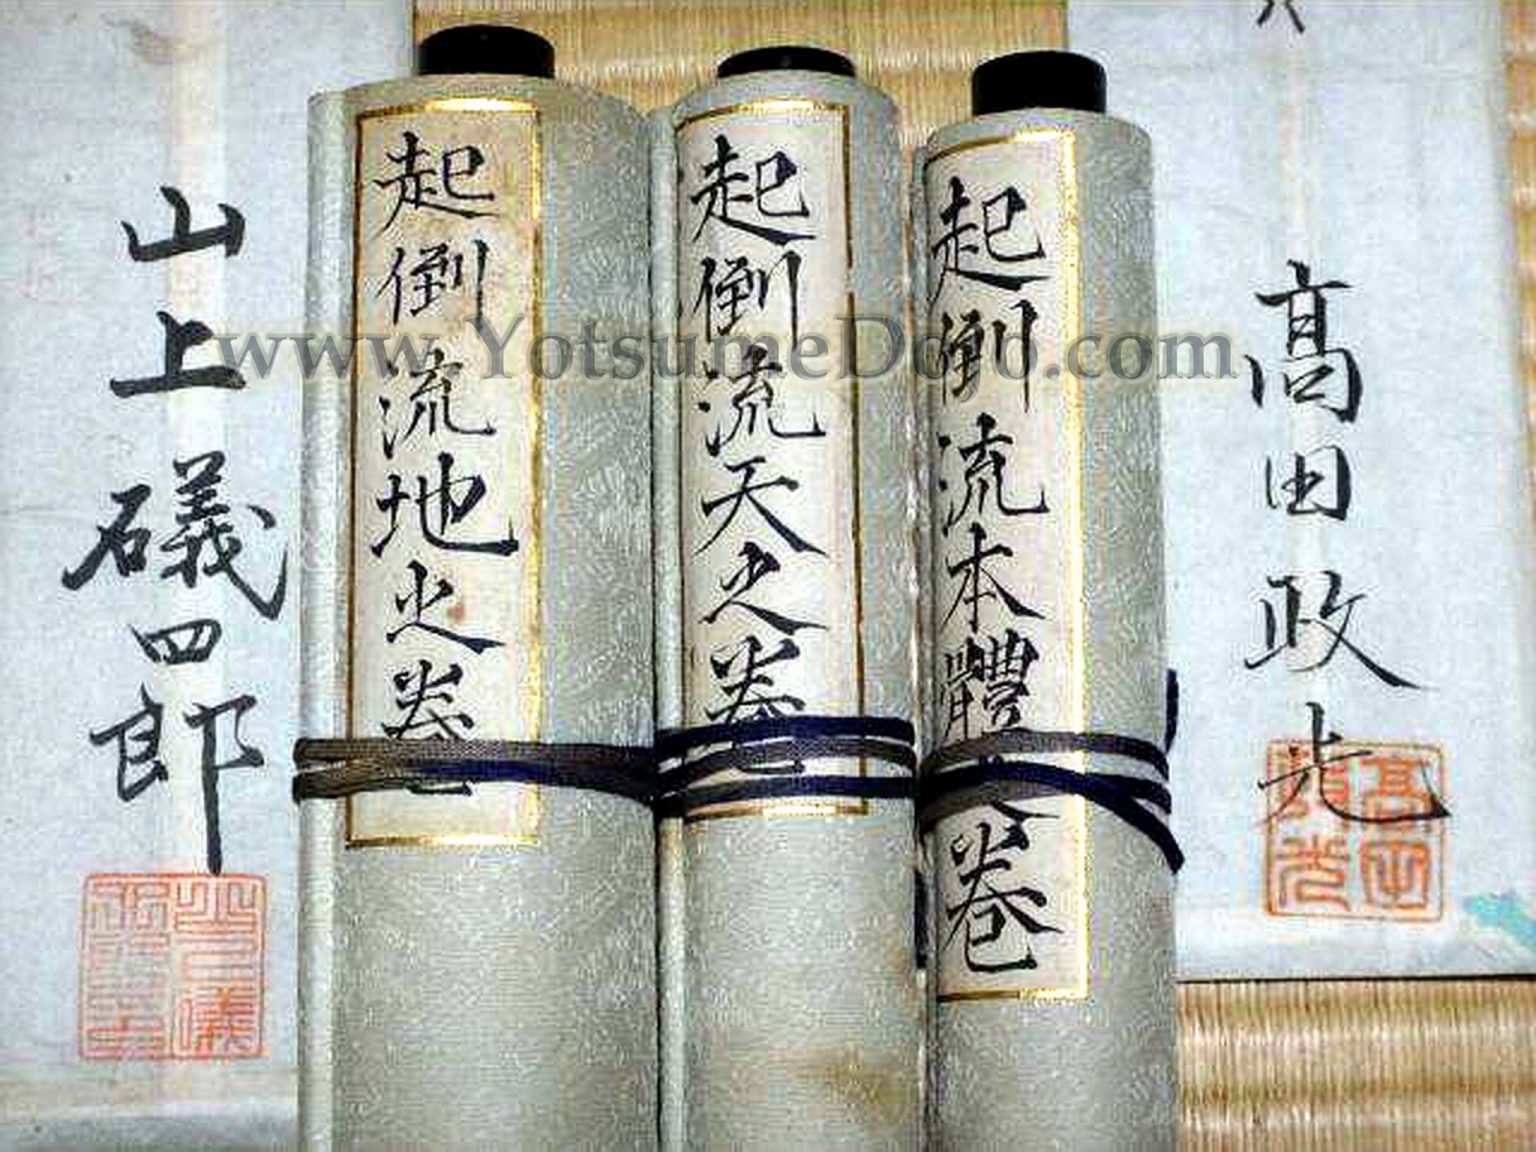 高田政光
起倒流本體之巻
起倒流天之巻
起倒流地之巻
山上礒四郎
www.YotsumeDojo.com